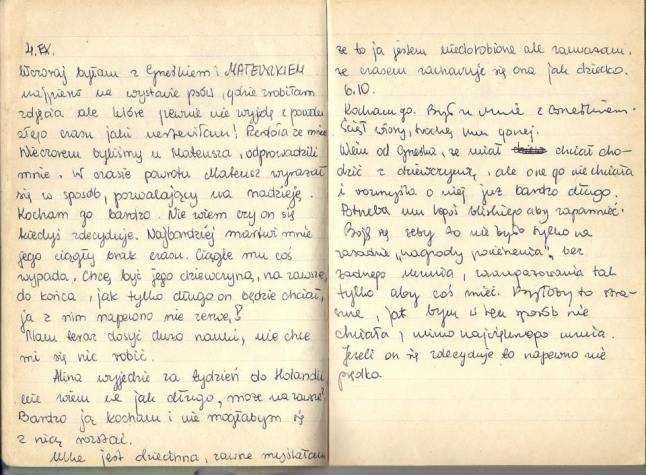 4.IX.
Wczoraj byłam z Gneśkiem i MATEUSZKIEM
najpierw na wystawie psów, gdzie zrobiłam
zdjęcia ale które pewnie nie wyjdą z powodu
złego czasu jaki nastawiłam! Pierdoła ze mnie
Wieczorem byliśmy u Mateusza, odprowadzili
mnie. W czasie powrotu Mateusz wyrażał
się w sposób, pozwalający na nadzieję.
Kocham go bardzo. Nie wiem czy on się
kiedyś zdecyduje. Najbardziej martwi mnie
jego ciągły brak czasu. Ciągle mu coś
wypada. Chcę być jego dziewczyną, na zawsze,
do końca, jak tylko długo on będzie chciał,
ja z nim napewno nie zerwę!
Mam teraz dosyć dużo nauki, nie chce
mi się nic robić.
Alina wyjedzie za tydzień do Holandii
nie wiem na jak długo, może na zawsze?
Bardzo ją kocham i nie mogłabym się
z nią rozstać.
jest dziecinna, zawsze myślałam
że to ja jestem niedorobione ale zauważam,
że czasem zachowuje się ona jak dziecko.
6.10.
Kocham go. Był u mnie z Gneśkiem.
Ściął włosy, trochę mu gorzej.
Wiem od Gneśka, że miał chciał cho-
dzić z dziewczyną, ale ona go nie chciała
i rozmyśla o niej już bardzo długo.
Potrzeba mu kogoś bliskiego aby zapomnieć.
Boję się żeby to nie było tylko na
zasadzie „nagrody pocieszenia", bez
żadnego uczucia, zaangażowania tak
tylko aby coś mieć. Byłoby to stra-
szne, jak bym w ten sposób nie
chciała, mimo największego uczucia.
Jeżeli on się zdecyduje to napewno nie
prędko